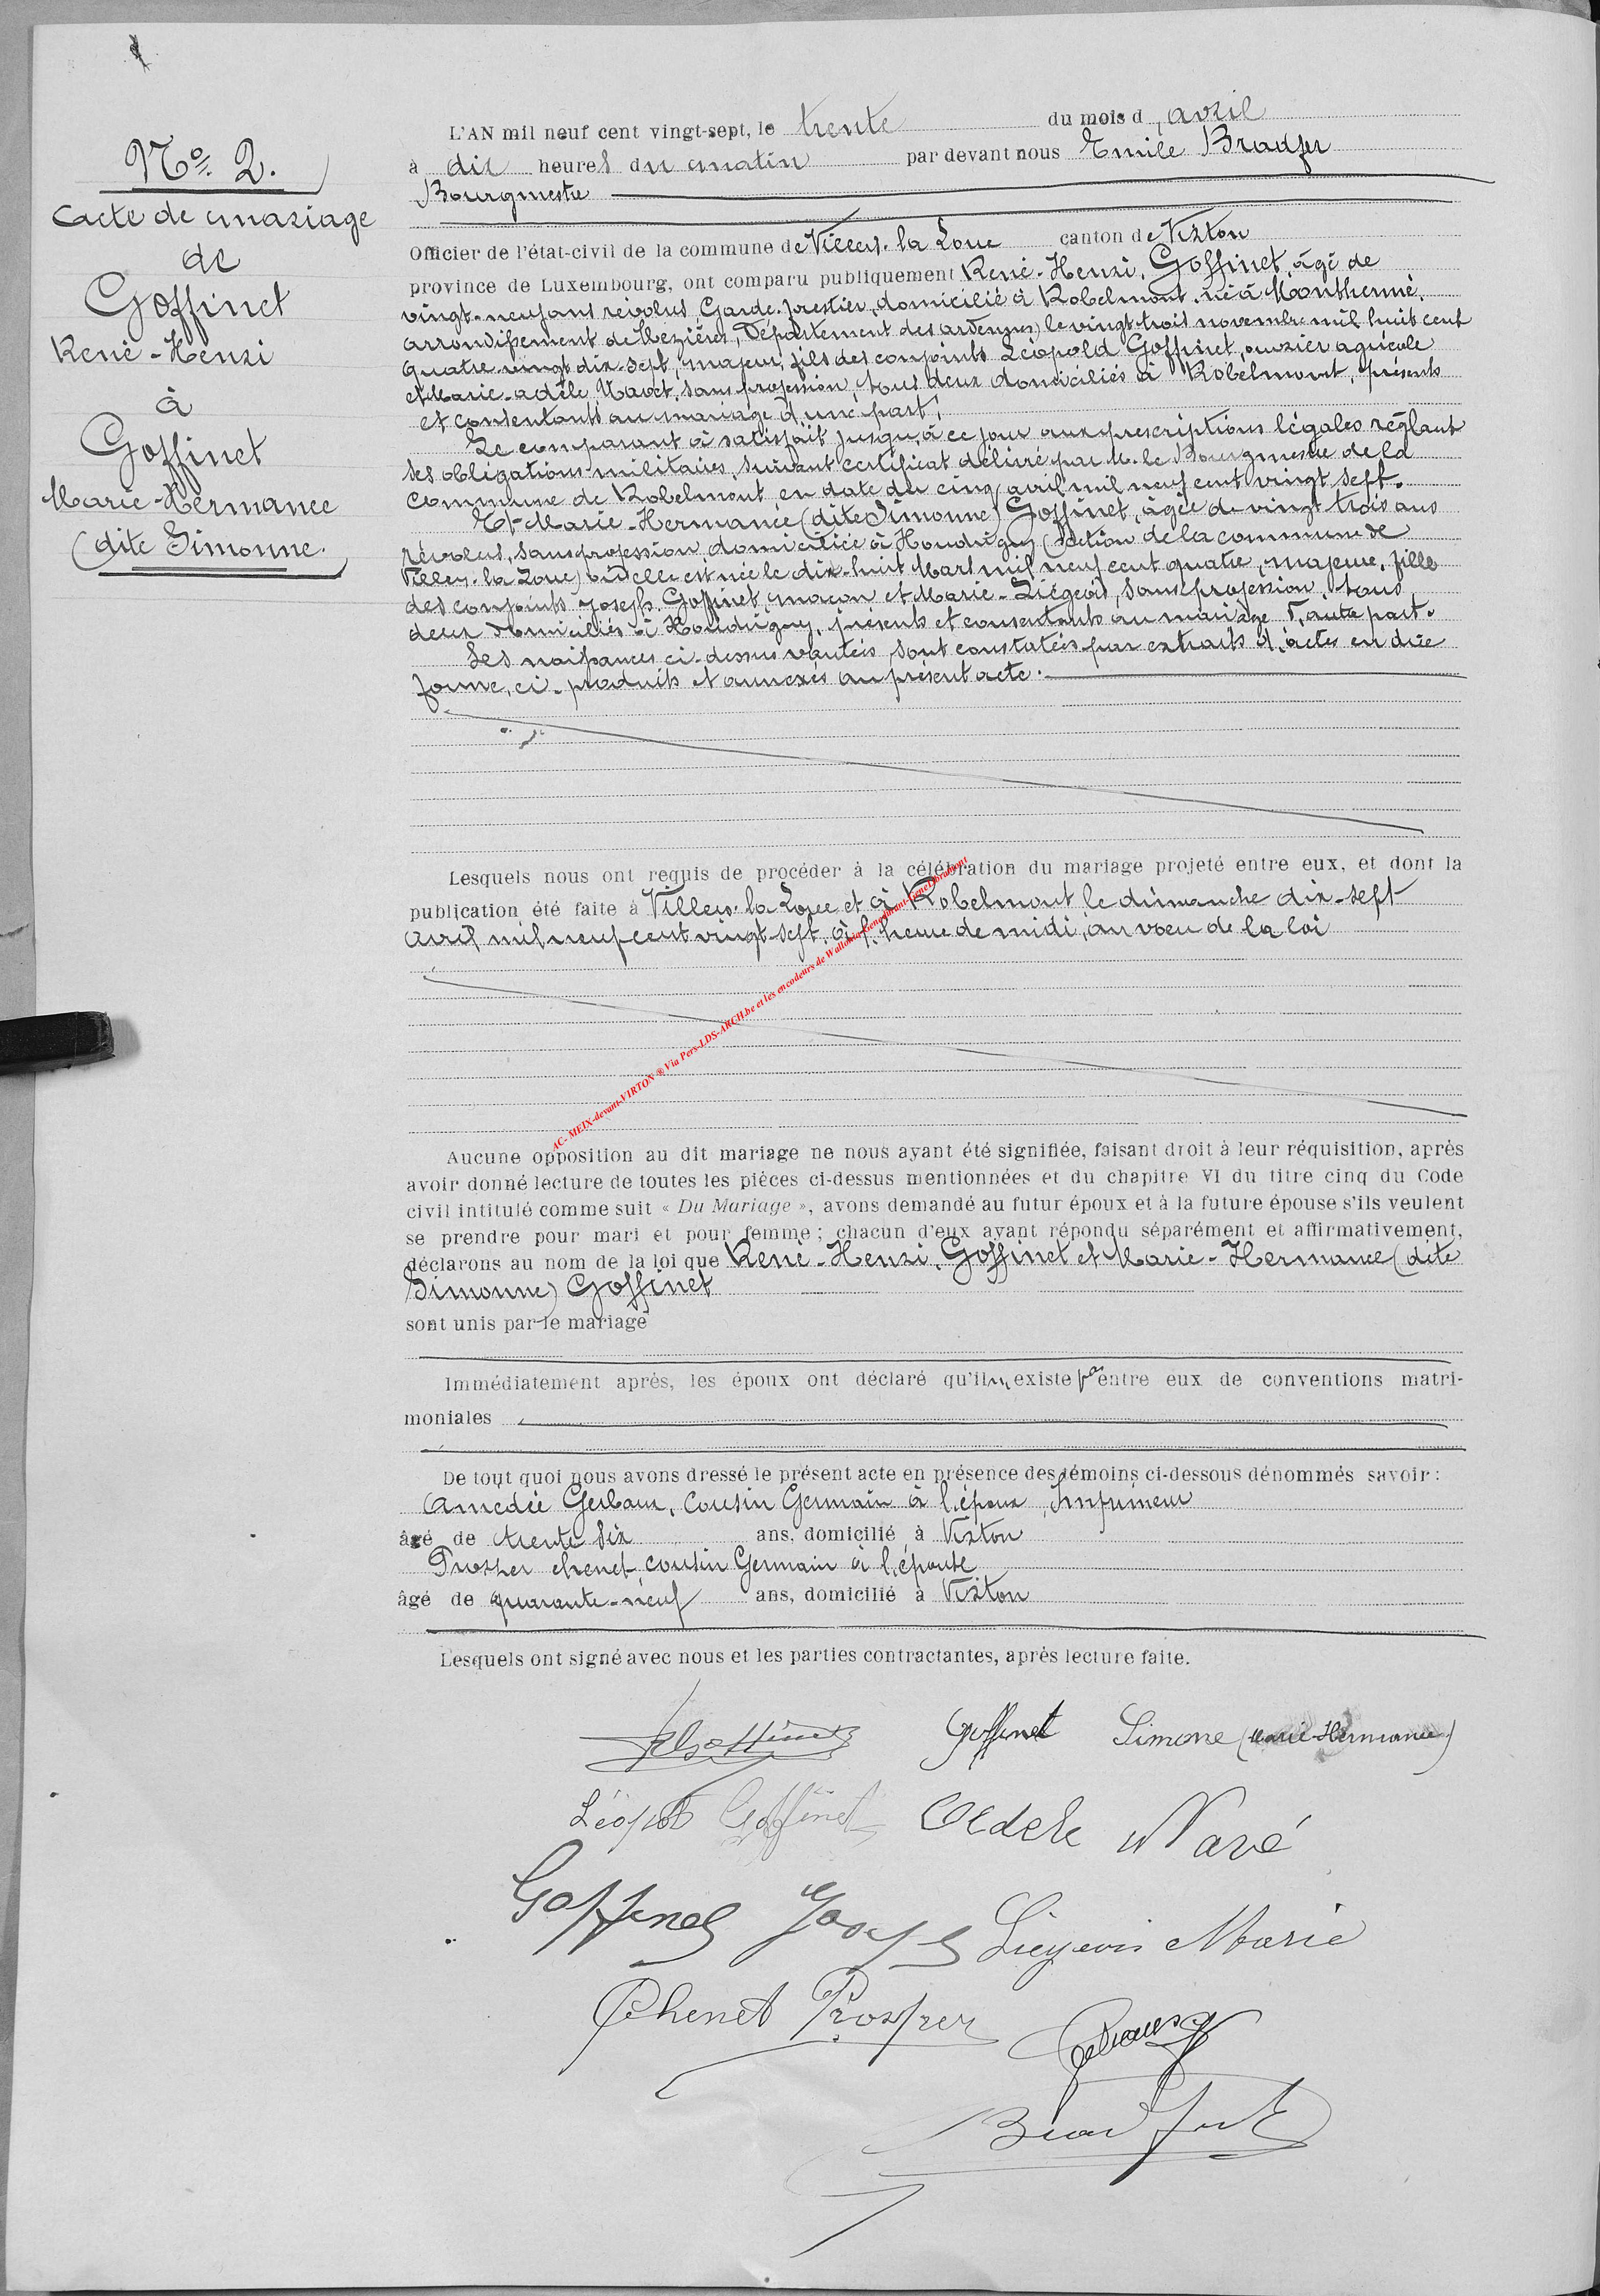 N° 2.
acte de mariage
de
Goffinet
René-Henri
à
Goffinet
Marie-Hermance
(dite Simonne.
L'AN mil neuf cent vingt-sept, le trente du mois d'avril
à dix heures du matin par devant nous Emile Bradfer
Bourgmestre
Officier de l'état-civil de la commune de Villers-la-Loue canton de Virton
province de Luxembourg, ont comparu publiquement René-Henri, Goffinet, âgé de
vingt-neuf ans révolus, Garde-forestier, domicilié à Robelmont, né à Monthermé,
arrondissement de Mézières, Département des ardennes) le vingt-trois novembre mil huit cent
quatre-vingt dix-sept, majeur, fils des conjoints Léopold Goffinet, ouvrier agricole
et Marie-adèle Navet, sans profession, tous deux domiciliés à Robelmont, présents
et consentants au mariage d'une part;
Le comparant à satisfait jusqu'à ce jour aux prescriptions légales réglant
ses obligations militaires, suivant certificat délivré par M. le Bourgmestre de la
commune de Robelmont en date du cinq avril mil neuf cent vingt sept.
Et Marie-Hermance (dite Simonne) Goffinet, âgée de vingt trois ans
révolus, sans profession domiciliée à Houdrigny (section de la commune de
Villers-la-Loue) où elle est née le dix-huit Mars mil neuf cent quatre, majeure, fille
des conjoints Joseph Goffinet, maçon et Marie-Liégeois, sans profession, tous
deux domiciliés à Houdrigny, présents et consentants au mariage d'autre part.
Les naissances ci-dessus vantées sont constatées par extraits d'actes en due
forme, ci-produits et annexés au présent acte.
Lesquels nous ont requis de procéder à la célébration du mariage projeté entre eux, et dont la
publication été faite à Villers-la-Loue et à Robelmont le dimanche dix-sept
avril mil neuf cent vingt-sept, à l'heure de midi, au vœu de la loi
AC- MEIX-devant-VIRTON ® Via Pers-LDS-ARCH.be et les encodeurs de Wallonia
Aucune opposition au dit mariage ne nous ayant été signifiée, faisant droit à leur réquisition, après
avoir donné lecture de toutes les pièces ci-dessus mentionnées et du chapitre VI du titre cinq du Code
civil intitulé comme suit « Du Mariage », avons demandé au futur époux et à la future épouse s'ils veulent
se prendre pour mari et pour femme ; chacun d'eux ayant répondu séparément et affirmativement,
déclarons au nom de la loi que René-Henri, Goffinet et Marie-Hermance (dite
Simonne) Goffinet
sont unis par le mariage
Immédiatement après, les époux ont déclaré qu'il n'existe pas entre eux de conventions matri-
moniales
De tout quoi nous avons dressé le présent acte en présence des témoins ci-dessous dénommés savoir :
Amédée Gerbaux, Cousin Germain à l'époux, Imprimeur
âgé de trente six ans, domicilié à Virton
Prosper chenet, cousin Germain à l'épouse
âgé de quarante-neuf ans, domicilié à Virton
Lesquels ont signé avec nous et les parties contractantes, après lecture faite.
Goffinet Simone (Marie-Hermance)
Léopold Goffinet Adele Navé
Goffinet Joseph Liégeois Marie
Chenet Prosper